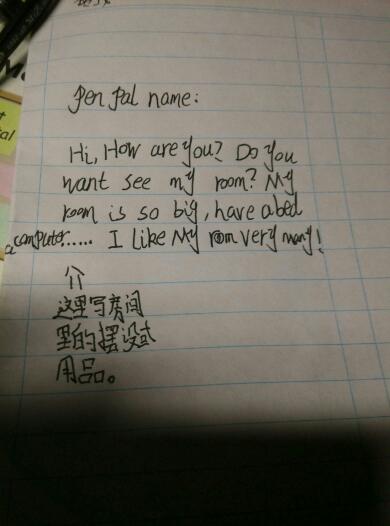 Pen Pal name:
Hi, How are you? Do you
want see my room? My
room is so big, have a bed
a computer...... I like My room very many!
个
这里写房间
里的摆设或
用品。